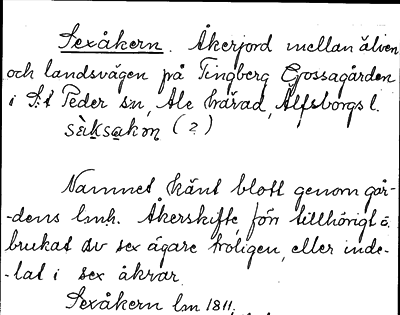 Sexåkern. Åkerjord mellan älven
och landsvägen på Tingberg Gossagården
i S:t Peder sn, Ale härad, Älfsborgs l.
sàksakon (?)
Namnet känt blott genom går-
-dens lmh. Åkerskifte, förr tillhörigt o.
brukat av sex ägare troligen, eller inde-
-lat i sex åkrar.
Sexåkern lm 1811.